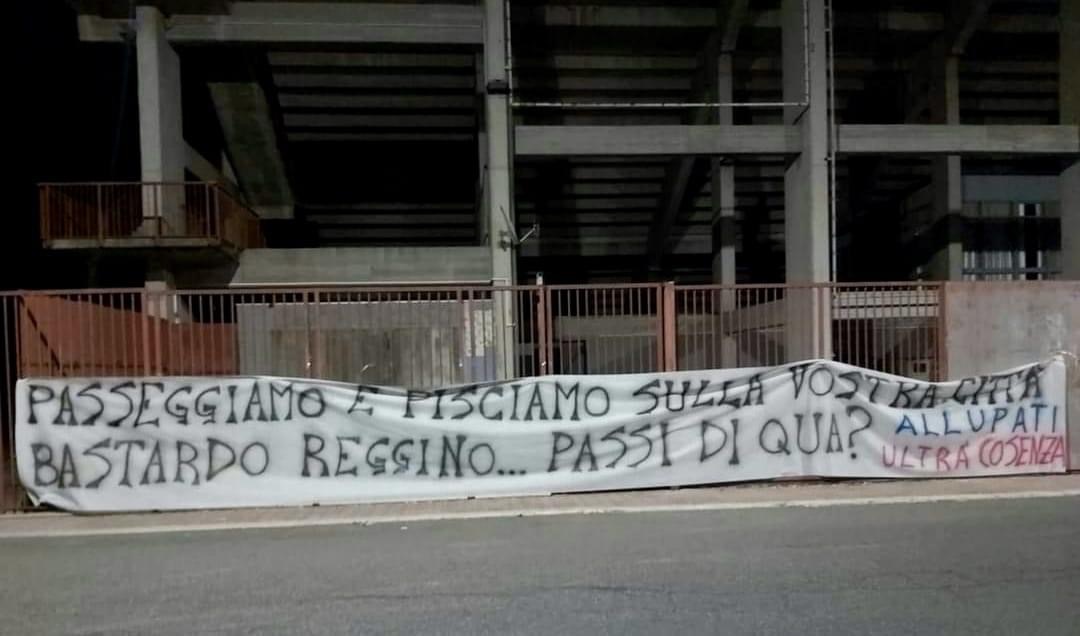 PASSEGGIAMO E PISCIAMO SULLA VOSTRA CITTÀ
BASTARDO REGGINO... PASSI DI QUA?
ALLUPATI
ULTRÀ COSENZA